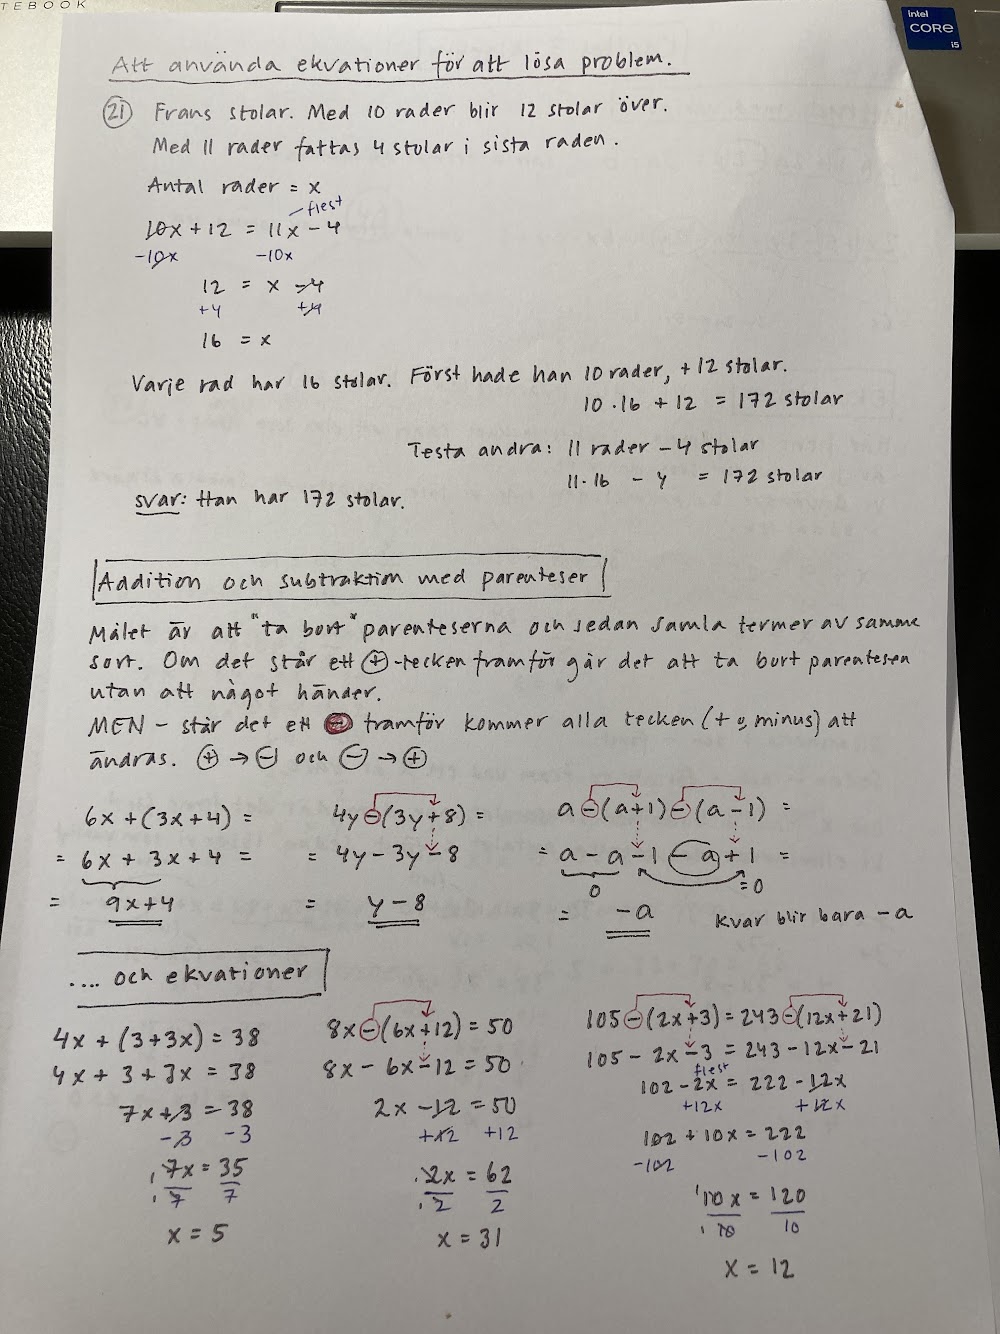 TEBOOK
intel CORE i5
Att använda ekvationer för att lösa problem.
21 Frans stolar. Med 10 rader blir 12 stolar över.
Med 11 rader fattas 4 stolar i sista raden.
Antal rader = x
flest
10x + 12 = 11x - 4
-10x -10x
12 = x - 4
+4 +4
16 = x
Varje rad har 16 stolar. Först hade han 10 rader, + 12 stolar.
10 · 16 + 12 = 172 stolar
Testa andra: 11 rader - 4 stolar
11 · 16 - 4 = 172 stolar
svar: Han har 172 stolar.
Addition och subtraktion med parenteser
Målet är att "ta bort" parenteserna och sedan samla termer av samma
sort. Om det står ett +-tecken framför går det att ta bort parentesen
utan att något händer.
MEN - står det ett - framför kommer alla tecken (+ o minus) att
ändras. + → - och - → +
6x + (3x + 4) = 4y - (3y + 8) = a - (a + 1) - (a - 1) =
= 6x + 3x + 4 = = 4y - 3y - 8 = a - a - 1 - a + 1 =
0 = 0
= 9x + 4 = y - 8 = -a Kvar blir bara -a
.... och ekvationer
4x + (3 + 3x) = 38 8x - (6x + 12) = 50 105 - (2x + 3) = 243 - (12x + 21)
4x + 3 + 3x = 38 8x - 6x - 12 = 50 105 - 2x - 3 = 243 - 12x - 21
flest
7x + 3 = 38 2x - 12 = 50 102 - 2x = 222 - 12x
-3 -3 +12 +12 +12x +12x
7x = 35 2x = 62 102 + 10x = 222
7 7 2 2 -102 -102
x = 5 x = 31 10x = 120
10 10
x = 12